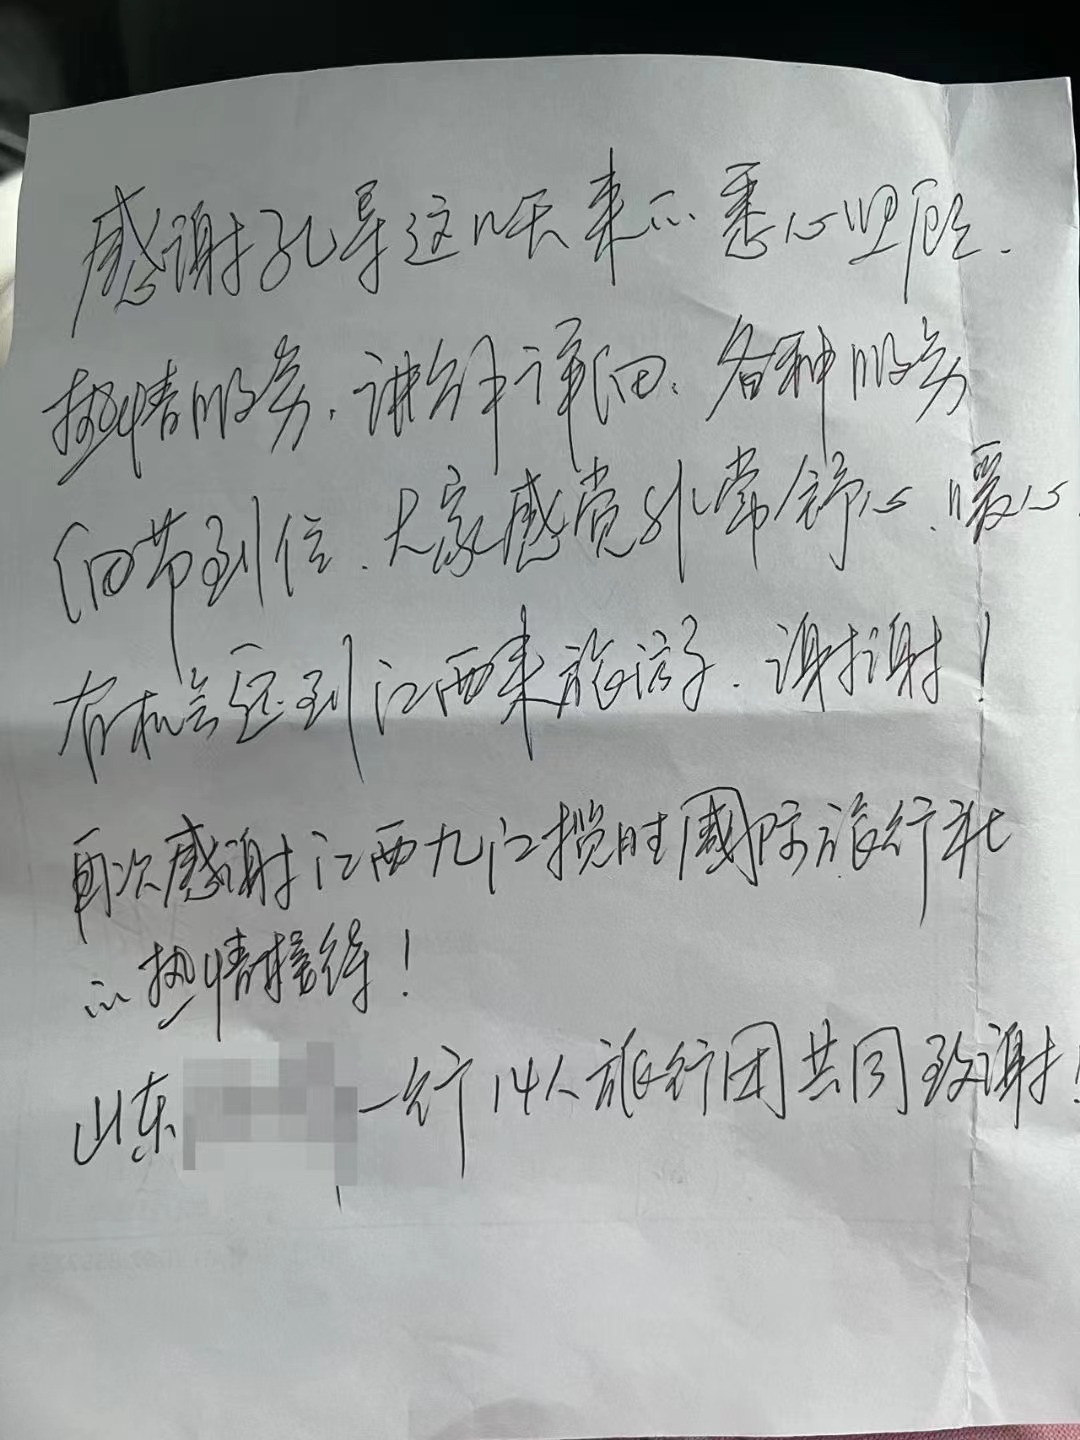 感谢孔导这几天来的悉心照顾、
热情服务，讲解详细，各种服务
细节到位、大家感觉非常舒心、暖心，
有机会还到江西来旅游、谢谢！
再次感谢江西九江揽胜国际旅行社
的热情接待！
山东 一行14人旅行团共同致谢！